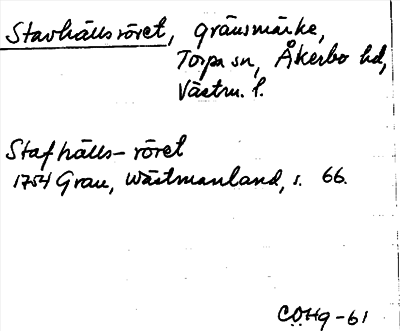 Stavhälls röret, gränsmärke,
Torpa sn, Åkerbo hd,
Västm. l.
Stafhälls-röret
1754 Grau, Wästmanland, s. 66.
COHg-61